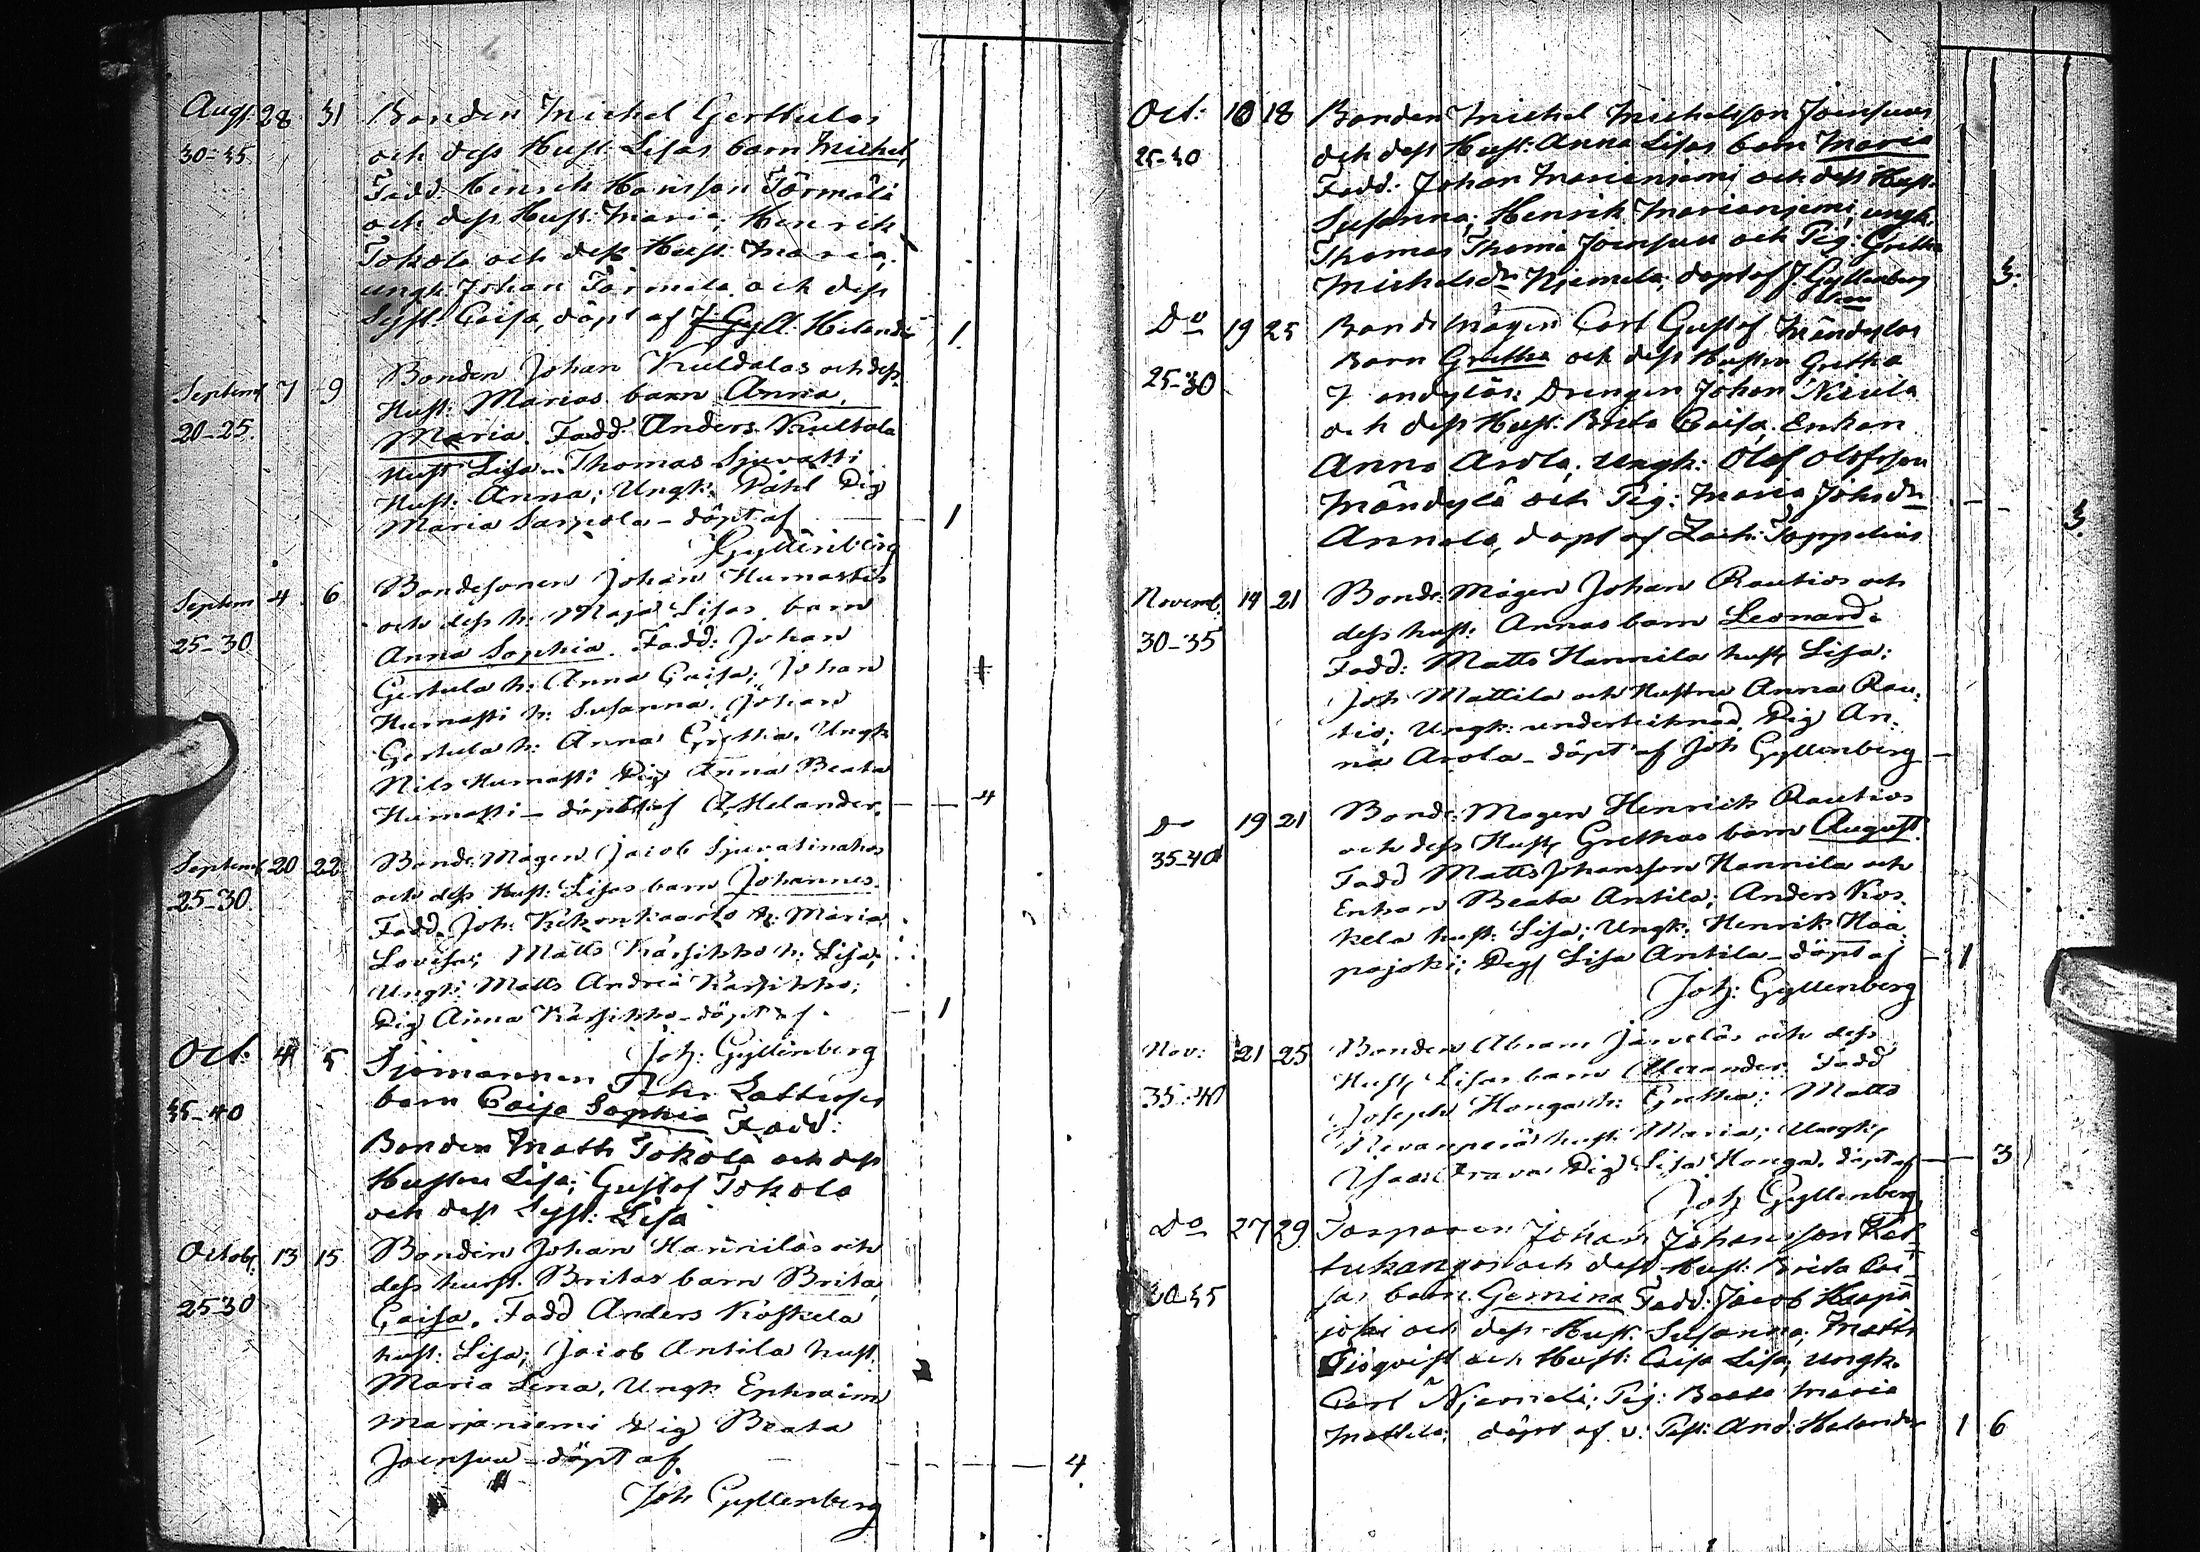 Aug. 28 31 Bonden Michel Gerttulas
30-35 och dess Hust: Lisas barn Michel,
Fadd. Henrik Hansson Törmälä
och dess Hust: Maria; Henrik
Tokola och dess Hust: Maria,
ungk: Johan Törmälä och dess
Syst: Caisa, döpt af J. Gyll. Helander 1
Septemb 7 9 Bonden Johan Kuldalas och dess
20-25. Hust: Marias barn Anna,
Maria. Fadd: Anders Kultala
Hust Lisa. Thomas Sjuvatti
Hust: Anna; Ungk: Påhl Pig
Maria Sarpola - döpt af 1
Gyllenberg
Septem 4 6 Bondesonen Johan Humastis
25-30 och dess h: Maja Lisas barn
Anna Sophia. Fadd: Johan
Gertula h: Anna Caisa; Johan
Humasti h: Susanna. Johan
Gertula h: Anna Gretha, Ungk
Nils Humasti Pig Anna Beata
Humasti - döpt af A. Helander. 4
Septemb 20 22 Bonde Mågen Jacob Sjuvatinahos
25-30. och dess Hust: Lisas barn Johannes.
Fadd. Joh: Kekonkaarto h: Maria
Lovisa; Matts Kärsikko h: Lisa;
Ungk: Matts Andreä Kärsikko;
Pig Anna Kärsikko - döpt af 1
Joh: Gyllenberg
Oct. 4 5 Sjömannen Petr. Lattuses
35-40 barn Caisa Sophia Fadd:
Bonden Matts Tokola och dess
Hustru Lisa; Gustaf Tokola
och dess Syst: Lisa
Octob: 13 15 Bonden Johan Hannilas och
25-30 dess hust. Britas barn Brita,
Caisa. Fadd Anders Koskela
hust: Lisa; Jacob Antila hust.
Maria Lena, Ungk Ephraim
Marjaniemi Pig Beata
Joensuu - döpt af 4
Joh Gyllenberg
Oct: 10 18 Bonden Michel Michelsson Joensuus
25-30 och dess Hust: Anna Lisas barn Maria
Fadd: Johan Marianiemi och dess Hust.
Susanna; Henrik Marianiemi, ungk.
Thomas Thome Joensuu och Pig: Gretha
Michelsdr Niemelä, döpt af J. Gyllenberg 3.
Do 19 25 Bonde mågen Carl Gustaf Mändylas
25-30 Barn Gretha och dess Hustru Gretha
Drengen Johan Nicula
och dess Hust: Brita Caisa, Enkan
Anna Arola, Ungk: Olof Olofsson
Mändylä och Pig: Maria Johsdr
Annala, döpt af Zach: Toppelius 3.
Novemb. 19 21 Bonde Mågen Johan Rautios och
30-35 dess hust: Annas barn Leonard.
Fadd: Matts Hannila hust Lisa;
Joh Mattila och Hustru Anna Rau-
tio; Ungk: undertecknad Pig An-
na Arola - döpt af Joh Gyllenberg
Do 19 21 Bonde Mågen Henrich Rautios
35-40 och dess Hust Grethas barn August.
Fadd Matts Johansson Hannila och
Enkan Beata Antila; Anders Kos-
kela hust: Lisa; Ungk. Henrik Haa-
pajoki; Pig Lisa Antila - döpt af 1
Joh: Gyllenberg
Nov: 21 25 Bonden Abram Järvelas och dess
35-40 Hust Lisas barn Alexander. Fadd
Joseph Honga h: Gretha; Matts
Nevanperä hust: Maria; Ungk
Isaac Prava Pig Lisa Honga. döpt af 3
Joh Gyllenberg
Do 27 29 Torparen Johan Johansson Kal-
30-35 tukangas och dess Hust: Brita Cai-
sas barn Gemina Fadd: Jacob Haapa
joki och dess Hust: Susanna; Matts
och Hust: Caisa Lisa; Ungk.
Carl Niemelä; Pig: Beata Maria
Mattila; döpt af v. Past: And: Helander 1 6